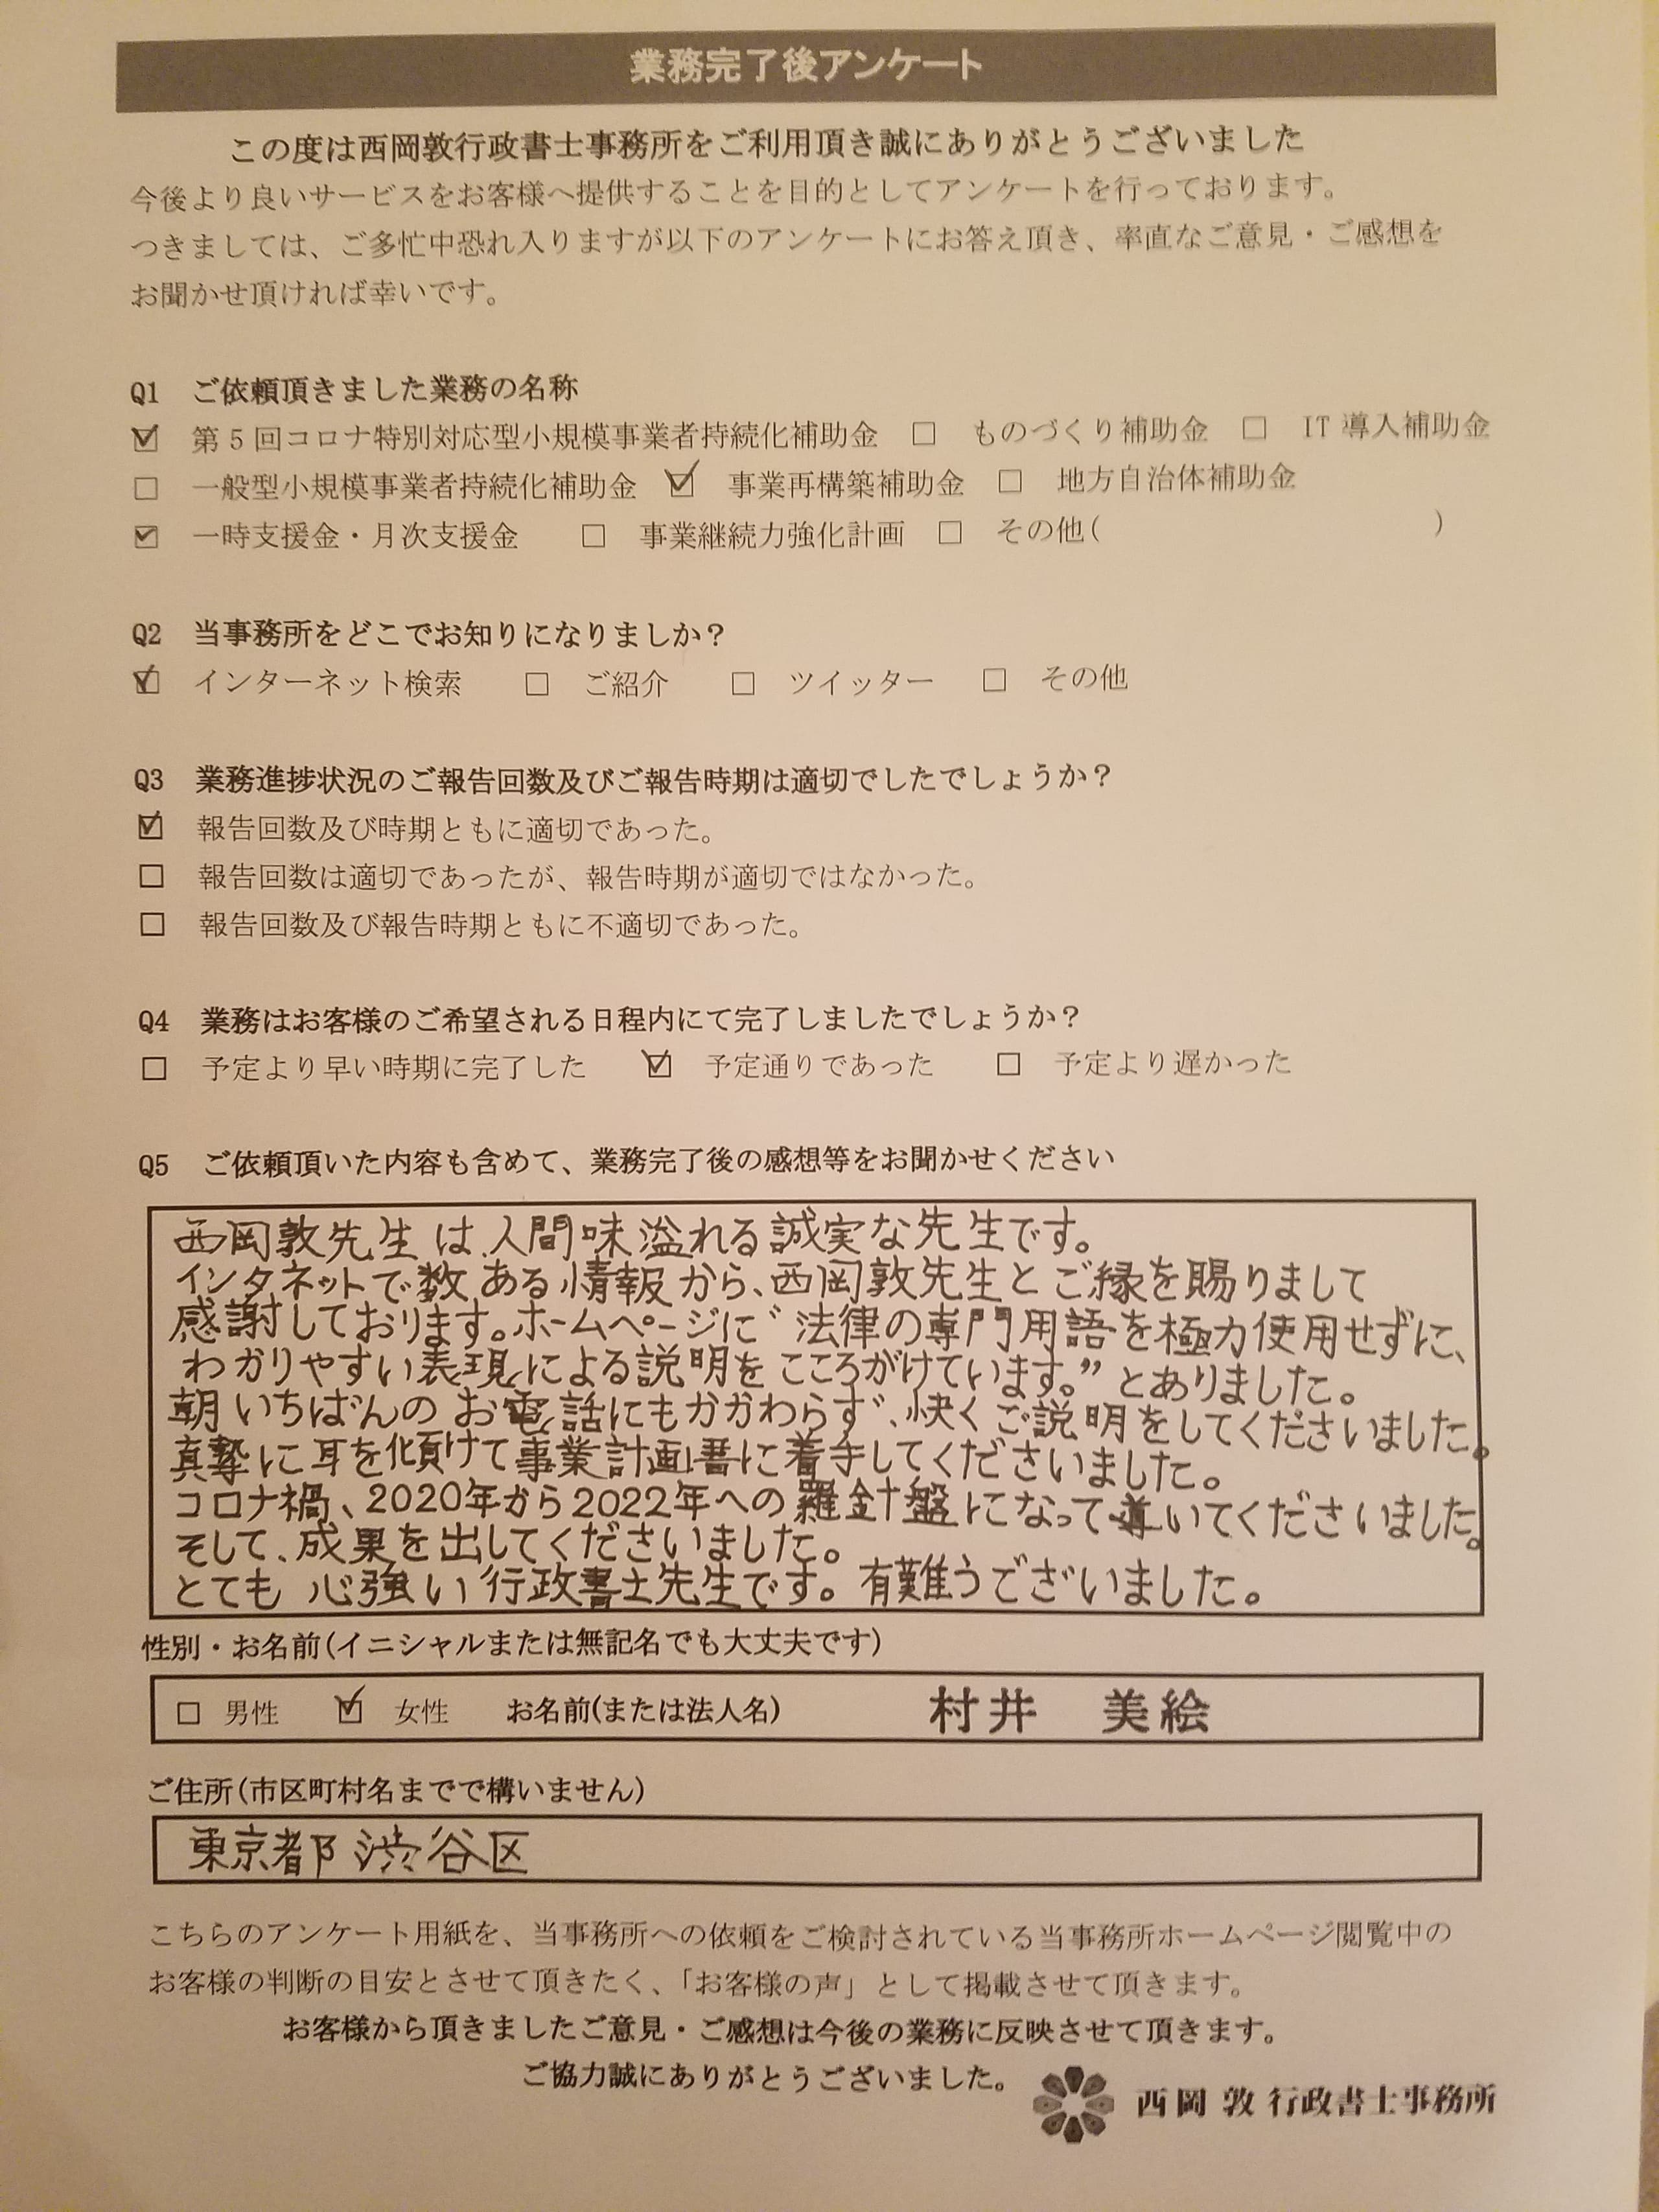 業務完了後アンケート
この度は西岡敦行政書士事務所をご利用頂き誠にありがとうございました
今後より良いサービスをお客様へ提供することを目的としてアンケートを行っております。
つきましては、ご多忙中恐れ入りますが以下のアンケートにお答え頂き、率直なご意見・ご感想を
お聞かせ頂ければ幸いです。
Q1 ご依頼頂きました業務の名称
☑ 第5回コロナ特別対応型小規模事業者持続化補助金 □ ものづくり補助金 □ IT 導入補助金
□ 一般型小規模事業者持続化補助金 ☑ 事業再構築補助金 □ 地方自治体補助金
☑ 一時支援金・月次支援金 □ 事業継続力強化計画 □ その他( )
Q2 当事務所をどこでお知りになりましか？
☑ インターネット検索 □ ご紹介 □ ツイッター □ その他
Q3 業務進捗状況のご報告回数及びご報告時期は適切でしたでしょうか？
☑ 報告回数及び時期ともに適切であった。
□ 報告回数は適切であったが、報告時期が適切ではなかった。
□ 報告回数及び報告時期ともに不適切であった。
Q4 業務はお客様のご希望される日程内にて完了しましたでしょうか？
□ 予定より早い時期に完了した ☑ 予定通りであった □ 予定より遅かった
Q5 ご依頼頂いた内容も含めて、業務完了後の感想等をお聞かせください
西岡敦先生は、人間味溢れる誠実な先生です。
インタネットで数ある情報から、西岡敦先生とご縁を賜りまして
感謝しております。ホームページに〝法律の専門用語を極力使用せずに、
わかりやすい表現による説明をこころがけています。〟とありました。
朝いちばんのお電話にもかかわらず、快くご説明をしてくださいました。
真摯に耳を傾けて事業計画書に着手してくださいました。
コロナ禍、2020年から2022年への羅針盤になって導いてくださいました。
そして、成果を出してくださいました。
とても心強い行政書士先生です。有難うございました。
性別・お名前(イニシャルまたは無記名でも大丈夫です)
□ 男性 ☑ 女性 お名前(または法人名) 村井 美絵
ご住所(市区町村名までで構いません)
東京都渋谷区
こちらのアンケート用紙を、当事務所への依頼をご検討されている当事務所ホームページ閲覧中の
お客様の判断の目安とさせて頂きたく、「お客様の声」として掲載させて頂きます。
お客様から頂きましたご意見・ご感想は今後の業務に反映させて頂きます。
ご協力誠にありがとうございました。
西岡 敦 行政書士事務所